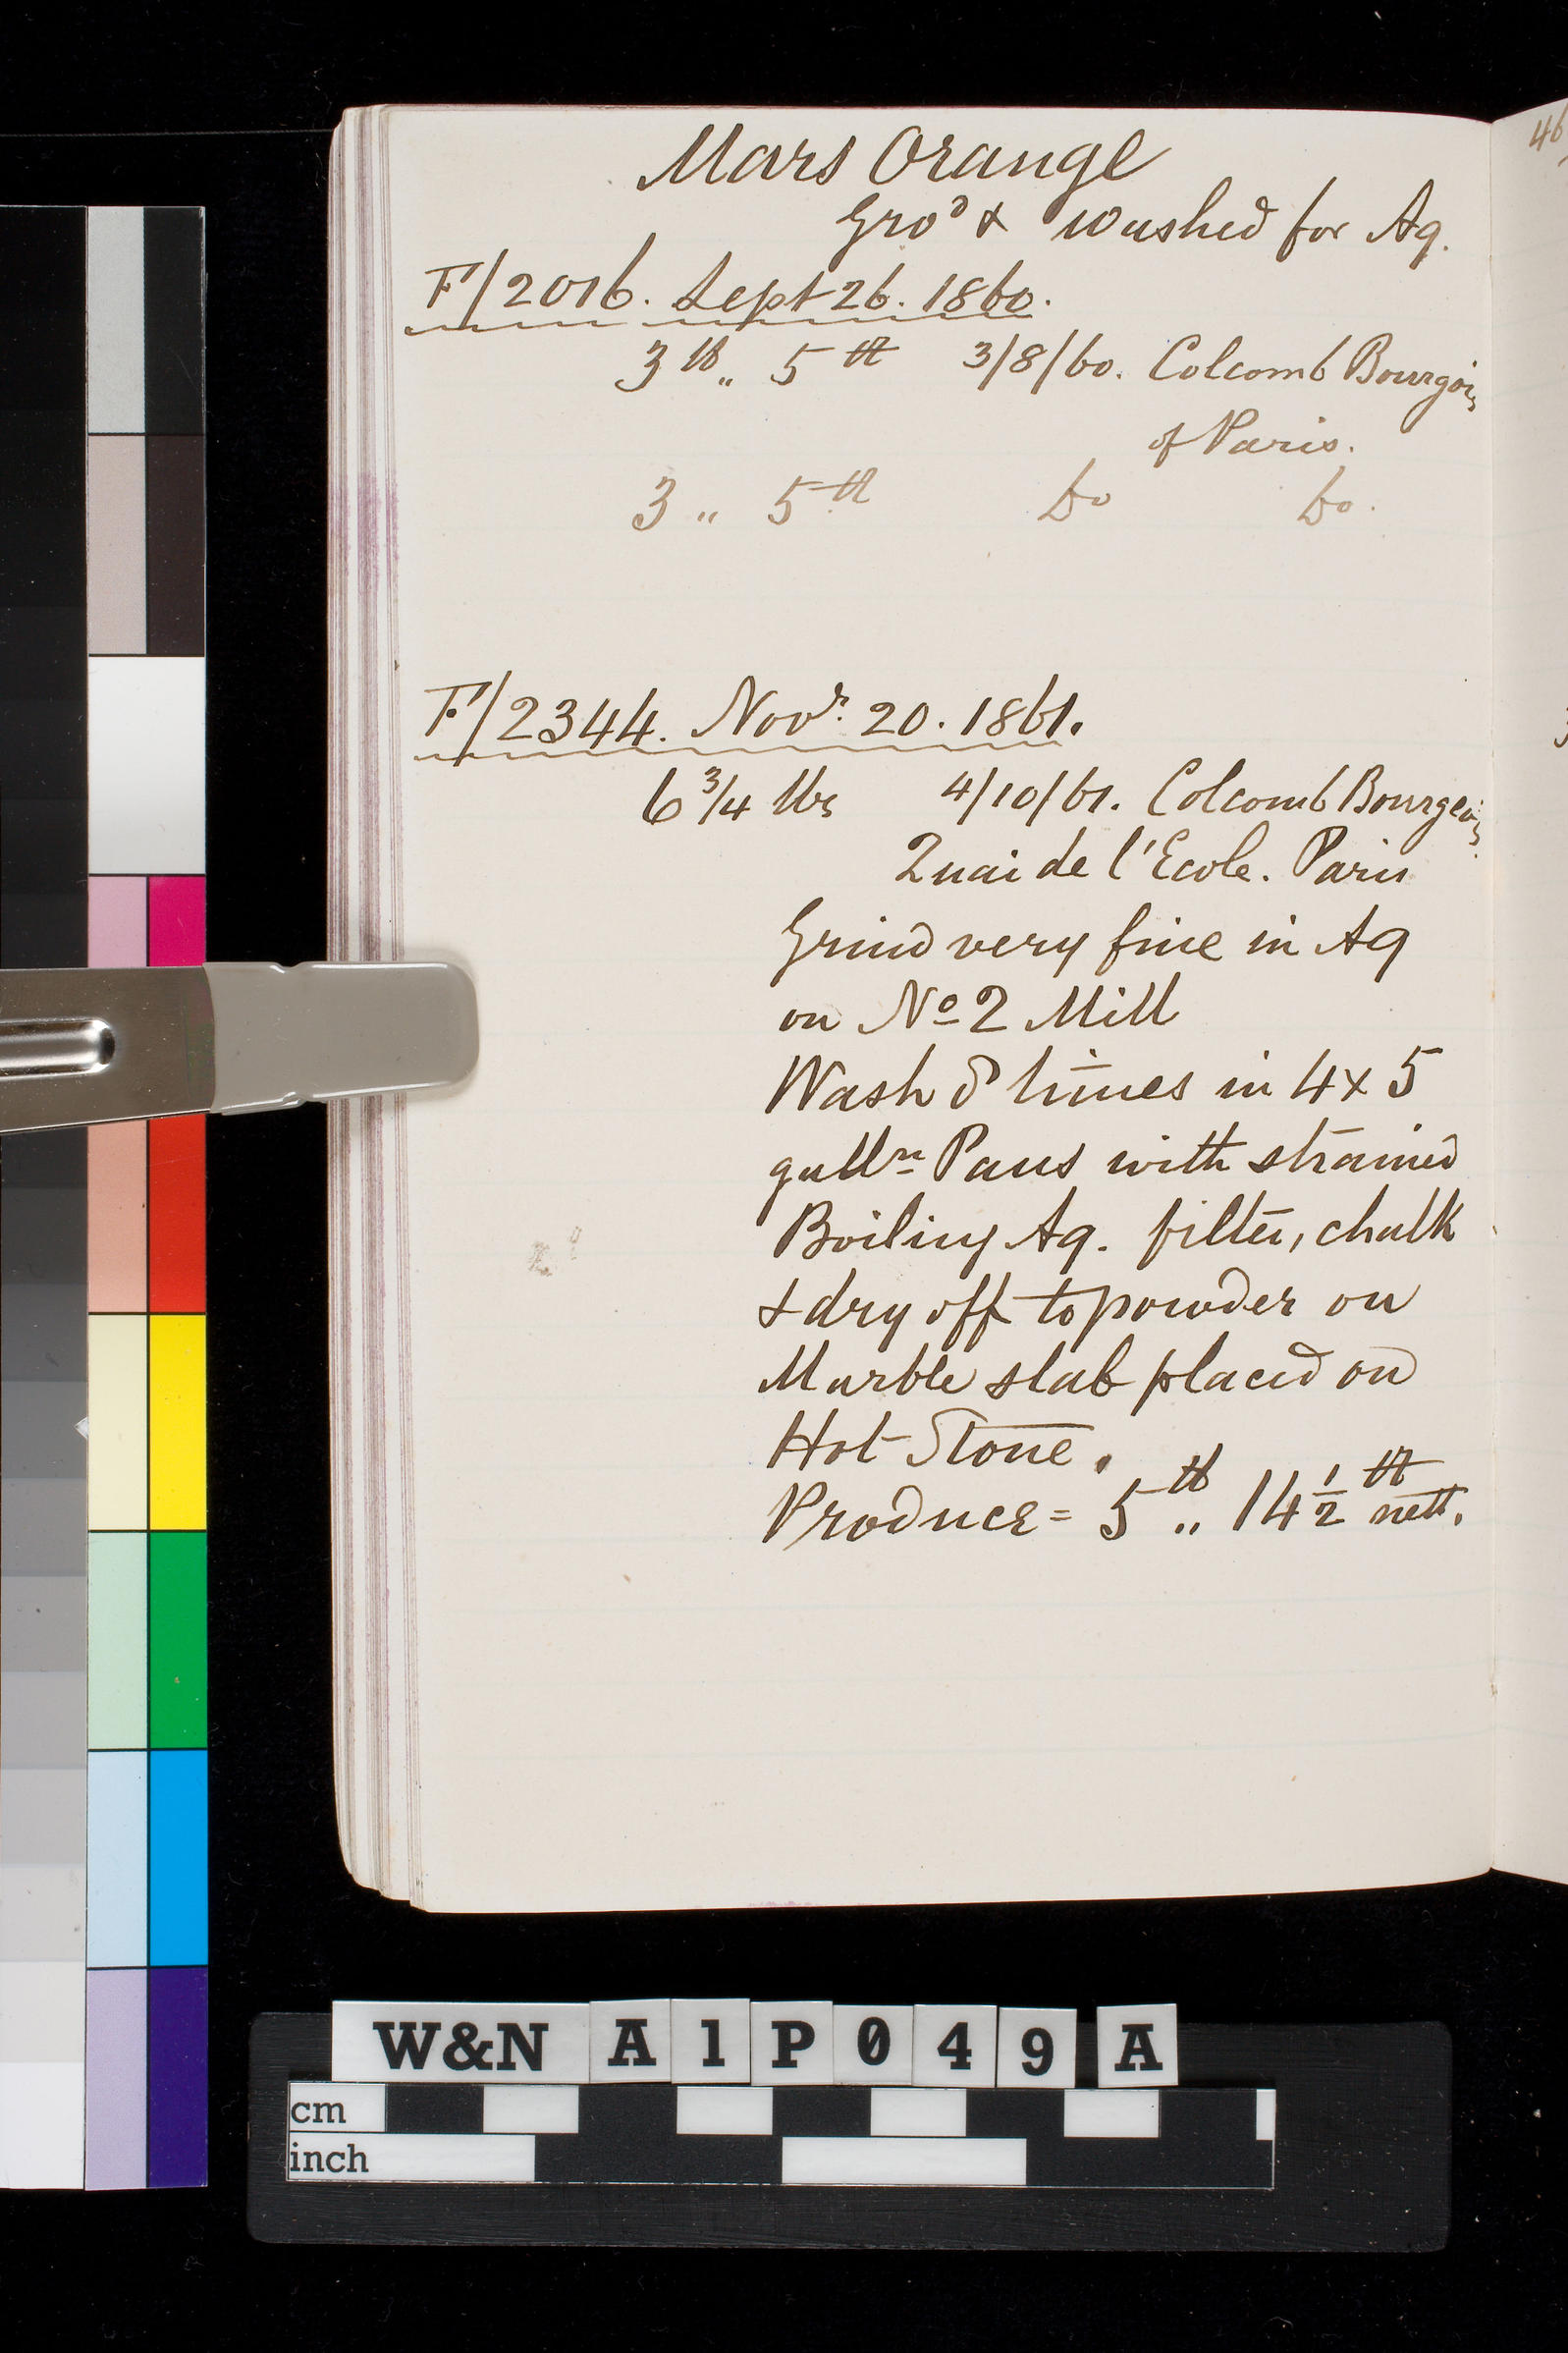 Mars Orange
Gro^d & Washed for Aq.
F/2016. Sept 26. 1860.
3 lb ,, 5 3/8/60. Colcomb Bourgois
of Paris.
3 ,, 5 Do Do.
F/2344. Nov^r. 20. 1861.
6 3/4 lbs 4/10/61. Colcomb Bourgeois
Quai de l'Ecole. Paris
Grind very fine in Aq
on No 2 Mill
Wash 8 times in 4 x 5
gall^n Pans with strained
Boiling Aq. filter, chalk
& dry off to powder on
Marble slab placed on
Hot Stone.
Produce = 5 lb ,, 14 1/2 nett.
46
W&N A1P049A
cm
inch